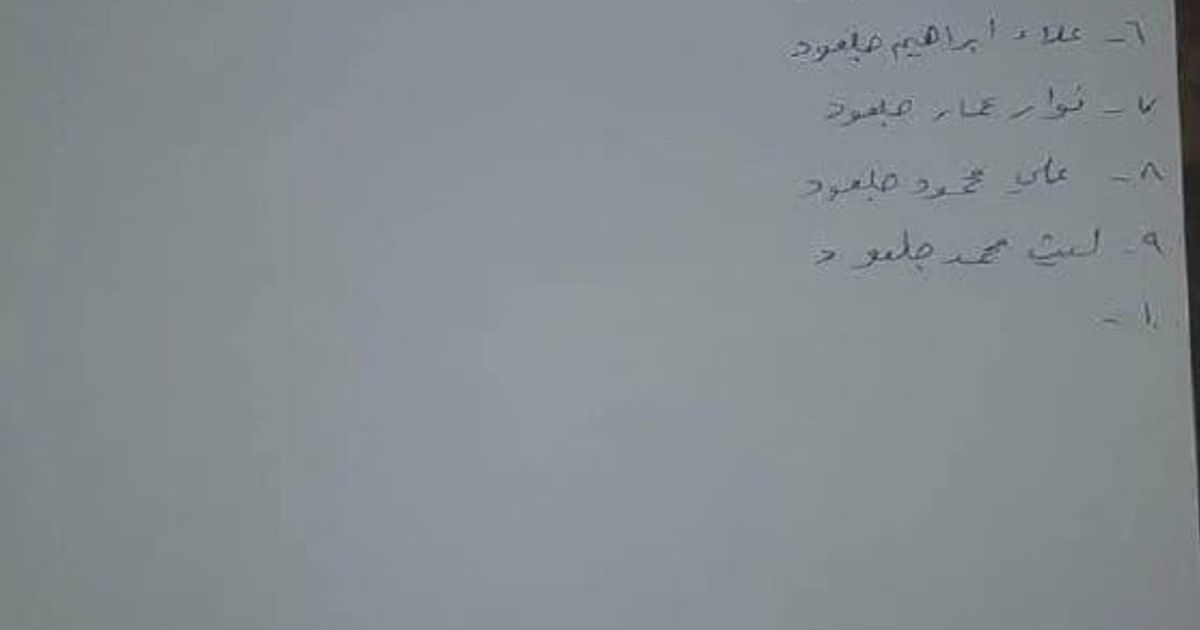 ٦- علاء ابراهيم جلعود
٧- نوار عمار جلعود
٨- علي محمود جلعود
٩- ليث محمد جلعود
١٠-